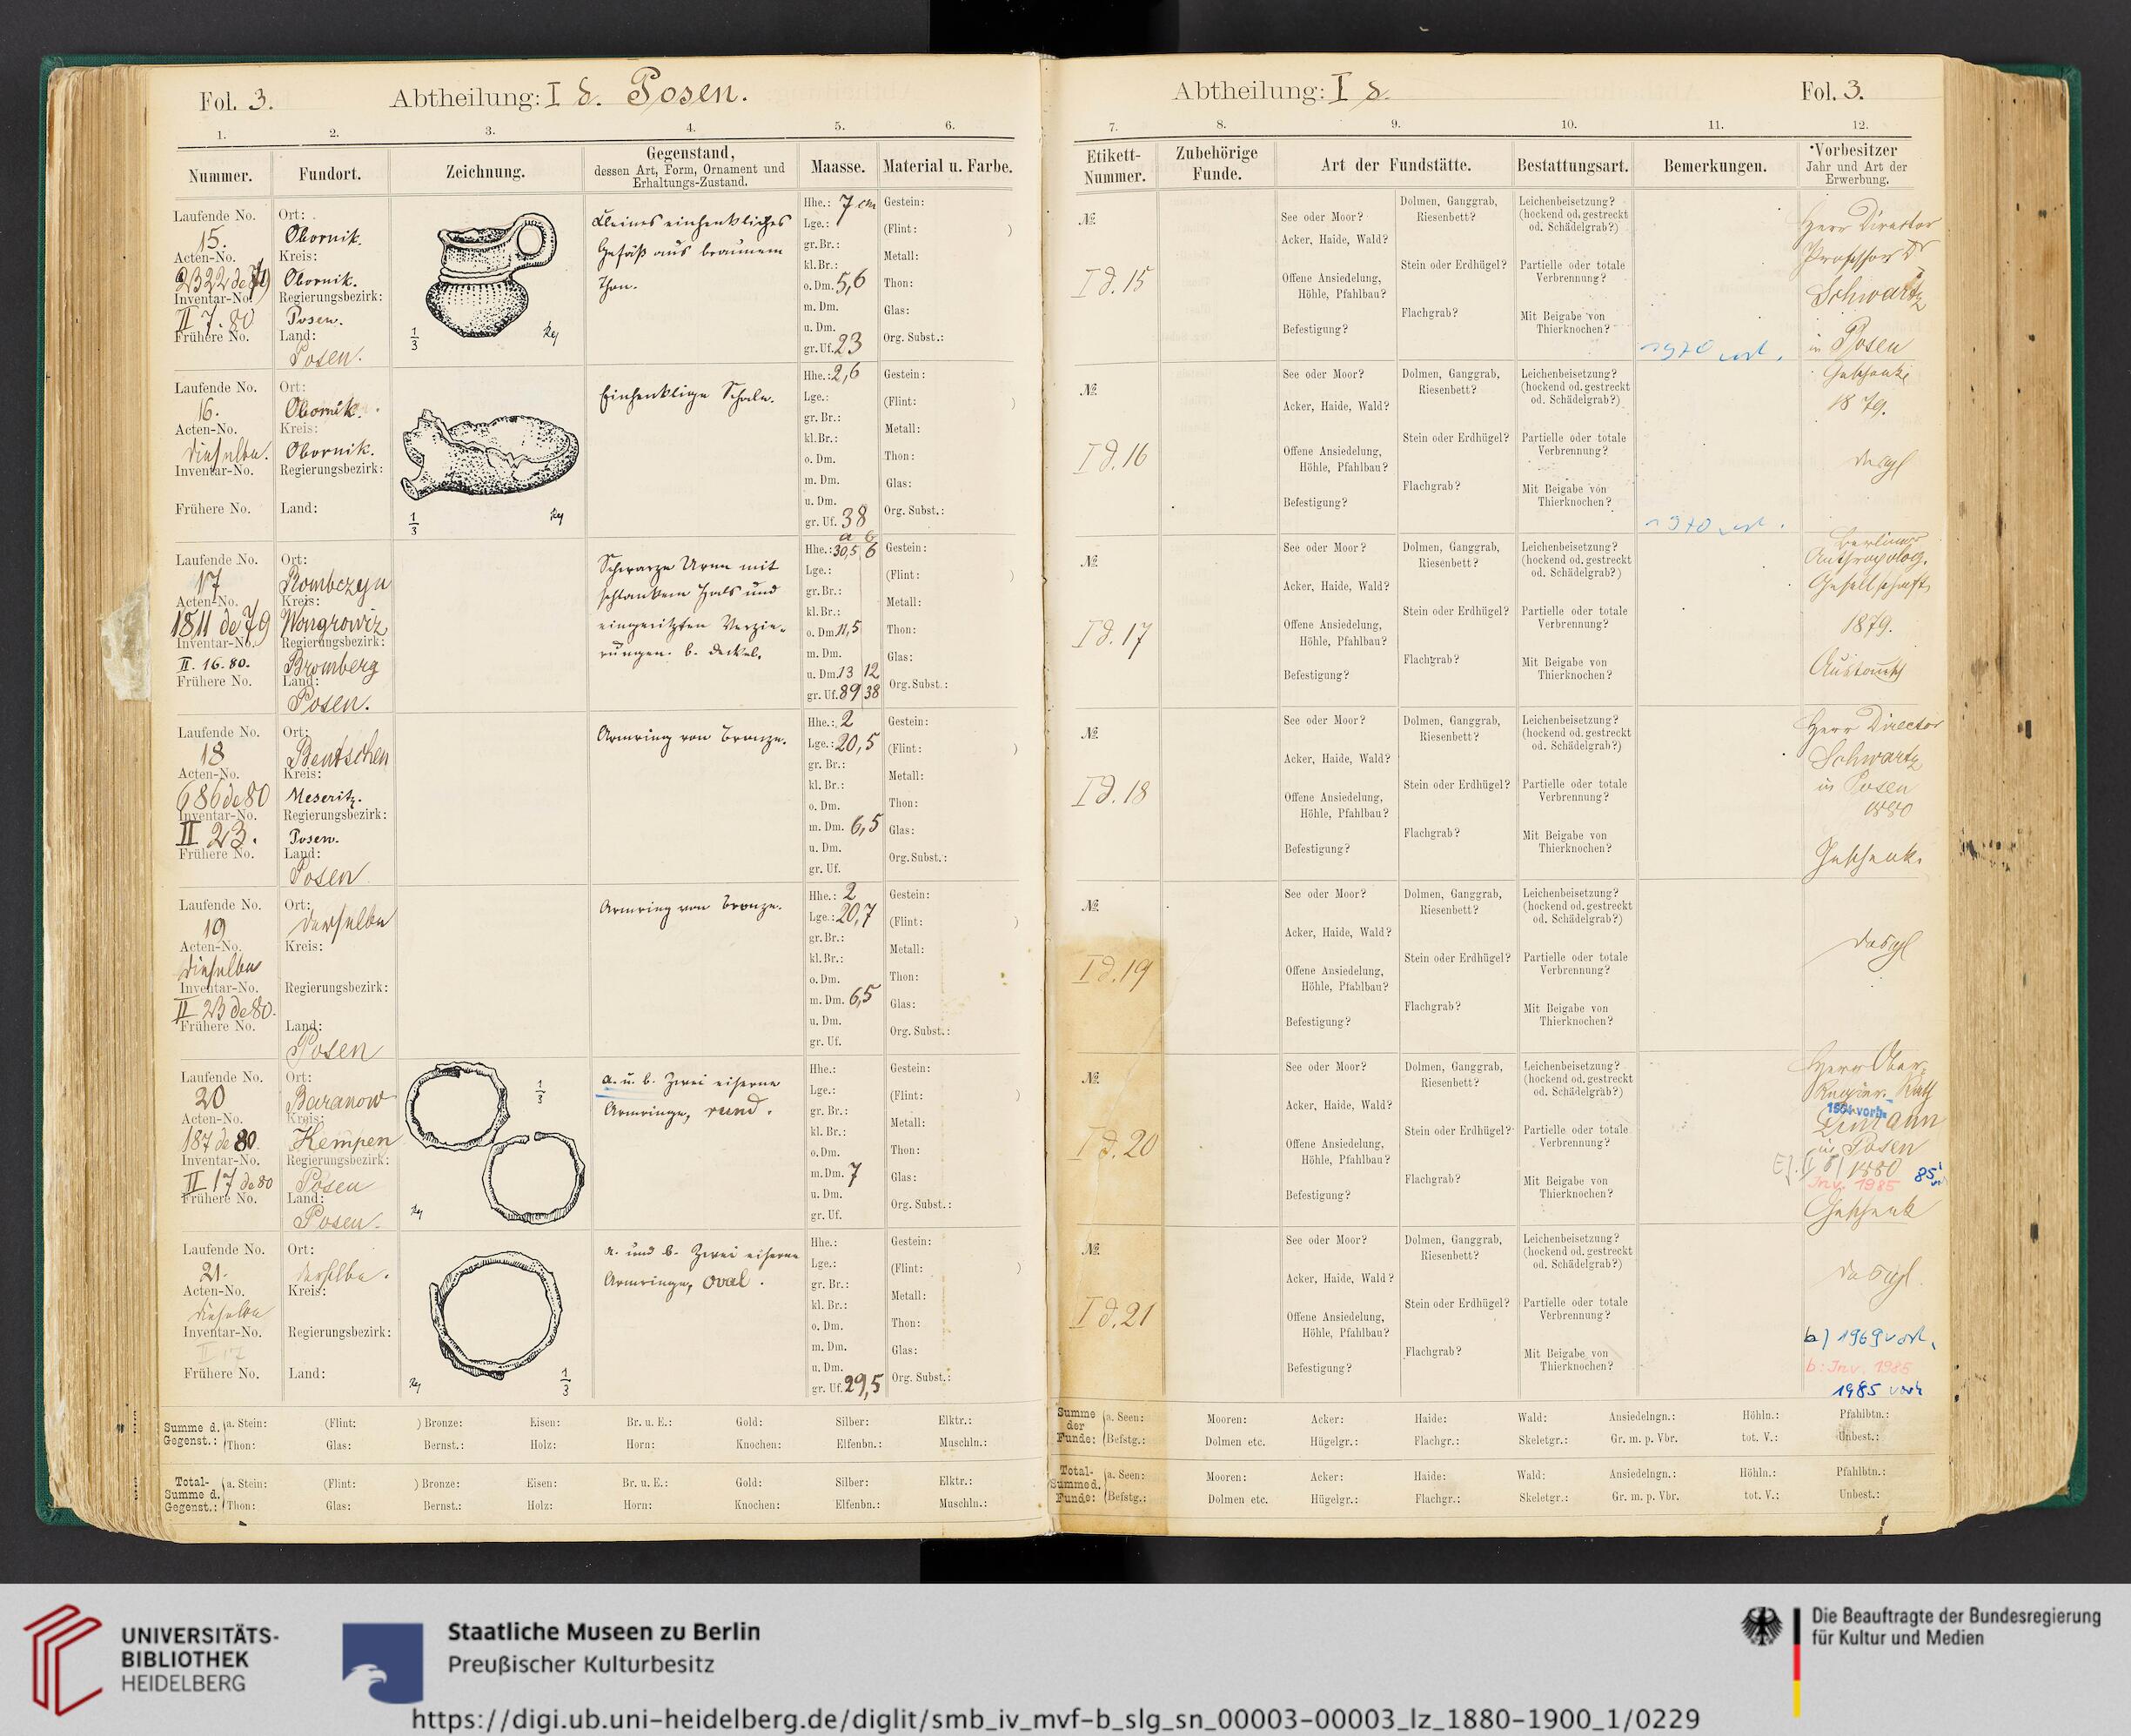 Fol. 3. Abtheilung: I d. Posen.
1. 2. 3. 4. 5. 6.
Nummer. Fundort. Zeichnung. Gegenstand, dessen Art, Form, Ornament und Erhaltungs-Zustand. Maasse. Material u. Farbe.
Laufende No. 15.
Acten-No. 2322 de 79
Inventar-No. II 7. 80
Frühere No.
Ort: Obornik.
Kreis: Obornik.
Regierungsbezirk: Posen.
Land: Posen.
1/3
Kleines einhenkliges
Gefäß aus braunem
Thon.
Hhe.: 7 cm
Lge.:
gr. Br.:
kl. Br.:
o. Dm. 5,6
m. Dm.
u. Dm.
gr. Uf. 23
Gestein:
(Flint: )
Metall:
Thon:
Glas:
Org. Subst.:
Laufende No. 16.
Acten-No. dieselbe.
Inventar-No.
Frühere No.
Ort: Obornik.
Kreis: Obornik.
Regierungsbezirk:
Land:
1/3
Einhenklige Schale.
Hhe.: 2,6
Lge.:
gr. Br.:
kl. Br.:
o. Dm.
m. Dm.
u. Dm.
gr. Uf. 38
Gestein:
(Flint: )
Metall:
Thon:
Glas:
Org. Subst.:
Laufende No. 17
Acten-No. 1811 de 79
Inventar-No. II. 16. 80.
Frühere No.
Ort: Rombczyn
Kreis: Wongrowiz
Regierungsbezirk: Bromberg
Land: Posen.
Schwarze Urne mit
schlankem Hals und
eingeritzten Verzie-
rungen. b. Deckel.
a b
Hhe.: 30,5 6
Lge.:
gr. Br.:
kl. Br.:
o. Dm. 11,5
m. Dm.
u. Dm. 13 12
gr. Uf. 89 38
Gestein:
(Flint: )
Metall:
Thon:
Glas:
Org. Subst.:
Laufende No. 18
Acten-No. 686 de 80
Inventar-No. II 23.
Frühere No.
Ort: Bentschen
Kreis: Meseritz.
Regierungsbezirk: Posen.
Land: Posen
Armring von Bronze.
Hhe.: 2
Lge.: 20,5
gr. Br.:
kl. Br.:
o. Dm.
m. Dm. 6,5
u. Dm.
gr. Uf.
Gestein:
(Flint: )
Metall:
Thon:
Glas:
Org. Subst.:
Laufende No. 19
Acten-No. dieselbe
Inventar-No. II 23 de 80.
Frühere No.
Ort: derselbe
Kreis:
Regierungsbezirk:
Land: Posen
Armring von Bronze.
Hhe.: 2
Lge.: 20,7
gr. Br.:
kl. Br.:
o. Dm.
m. Dm. 6,5
u. Dm.
gr. Uf.
Gestein:
(Flint: )
Metall:
Thon:
Glas:
Org. Subst.:
Laufende No. 20
Acten-No. 187 de 80.
Inventar-No. II 17 de 80
Frühere No.
Ort: Baranow
Kreis: Kempen
Regierungsbezirk: Posen
Land: Posen.
1/3
a. u. b. Zwei eiserne
Armringe, rund.
Hhe.:
Lge.:
gr. Br.:
kl. Br.:
o. Dm.
m. Dm. 7
u. Dm.
gr. Uf.
Gestein:
(Flint: )
Metall:
Thon:
Glas:
Org. Subst.:
Laufende No. 21.
Acten-No. dieselbe
Inventar-No. II 17
Frühere No.
Ort: derselbe.
Kreis:
Regierungsbezirk:
Land:
1/3
a. und b. Zwei eiserne
Armringe, oval.
Hhe.:
Lge.:
gr. Br.:
kl. Br.:
o. Dm.
m. Dm.
u. Dm.
gr. Uf. 29,5
Gestein:
(Flint: )
Metall:
Thon:
Glas:
Org. Subst.:
Summe d. Gegenst.: a. Stein: (Flint: ) Bronze: Eisen: Br. u. E.: Gold: Silber: Elktr.:
Thon: Glas: Bernst.: Holz: Horn: Knochen: Elfenbn.: Muschln.:
Total-Summe d. Gegenst.: a. Stein: (Flint: ) Bronze: Eisen: Br. u. E.: Gold: Silber: Elktr.:
Thon: Glas: Bernst.: Holz: Horn: Knochen: Elfenbn.: Muschln.:
Abtheilung: I d. Fol. 3.
7. 8. 9. 10. 11. 12.
Etikett-Nummer. Zubehörige Funde. Art der Fundstätte. Bestattungsart. Bemerkungen. Vorbesitzer Jahr und Art der Erwerbung.
№ I d. 15
See oder Moor? Dolmen, Ganggrab, Riesenbett? Leichenbeisetzung? (hockend od. gestreckt od. Schädelgrab?)
Acker, Haide, Wald?
Stein oder Erdhügel? Partielle oder totale Verbrennung?
Offene Ansiedelung, Höhle, Pfahlbau?
Flachgrab? Mit Beigabe von Thierknochen?
Befestigung?
1970 vorh.
Herr Director
Professor Dr
Schwartz
in Posen
Geschenk
1879.
№ I d. 16
See oder Moor? Dolmen, Ganggrab, Riesenbett? Leichenbeisetzung? (hockend od. gestreckt od. Schädelgrab?)
Acker, Haide, Wald?
Stein oder Erdhügel? Partielle oder totale Verbrennung?
Offene Ansiedelung, Höhle, Pfahlbau?
Flachgrab? Mit Beigabe von Thierknochen?
Befestigung?
1970 vorh.
desgl
№ I d. 17
See oder Moor? Dolmen, Ganggrab, Riesenbett? Leichenbeisetzung? (hockend od. gestreckt od. Schädelgrab?)
Acker, Haide, Wald?
Stein oder Erdhügel? Partielle oder totale Verbrennung?
Offene Ansiedelung, Höhle, Pfahlbau?
Flachgrab? Mit Beigabe von Thierknochen?
Befestigung?
Berliner
Anthropolog.
Gesellschaft
1879.
Austausch
№ I d. 18
See oder Moor? Dolmen, Ganggrab, Riesenbett? Leichenbeisetzung? (hockend od. gestreckt od. Schädelgrab?)
Acker, Haide, Wald?
Stein oder Erdhügel? Partielle oder totale Verbrennung?
Offene Ansiedelung, Höhle, Pfahlbau?
Flachgrab? Mit Beigabe von Thierknochen?
Befestigung?
Herr Director
Schwartz
in Posen
1880
Geschenk.
№ I d. 19
See oder Moor? Dolmen, Ganggrab, Riesenbett? Leichenbeisetzung? (hockend od. gestreckt od. Schädelgrab?)
Acker, Haide, Wald?
Stein oder Erdhügel? Partielle oder totale Verbrennung?
Offene Ansiedelung, Höhle, Pfahlbau?
Flachgrab? Mit Beigabe von Thierknochen?
Befestigung?
desgl
№ I d. 20
See oder Moor? Dolmen, Ganggrab, Riesenbett? Leichenbeisetzung? (hockend od. gestreckt od. Schädelgrab?)
Acker, Haide, Wald?
Stein oder Erdhügel? Partielle oder totale Verbrennung?
Offene Ansiedelung, Höhle, Pfahlbau?
Flachgrab? Mit Beigabe von Thierknochen?
Befestigung?
Herr Ober-
in Posen
1880
Inv. 1985
Geschenk
№ I d. 21
See oder Moor? Dolmen, Ganggrab, Riesenbett? Leichenbeisetzung? (hockend od. gestreckt od. Schädelgrab?)
Acker, Haide, Wald?
Stein oder Erdhügel? Partielle oder totale Verbrennung?
Offene Ansiedelung, Höhle, Pfahlbau?
Flachgrab? Mit Beigabe von Thierknochen?
Befestigung?
desgl.
b) 1969 vorh.
b: Inv. 1985
1985 vorh
Summe der Funde: a. Seen: Mooren: Acker: Haide: Wald: Ansiedelngn.: Höhln.: Pfahlbtn.:
Befstg.: Dolmen etc. Hügelgr.: Flachgr.: Skeletgr.: Gr. m. p. Vbr. tot. V.: Unbest.:
Total-Summe d. Funde: a. Seen: Mooren: Acker: Haide: Wald: Ansiedelngn.: Höhln.: Pfahlbtn.:
Befstg.: Dolmen etc. Hügelgr.: Flachgr.: Skeletgr.: Gr. m. p. Vbr. tot. V.: Unbest.:
UNIVERSITÄTS-
BIBLIOTHEK
HEIDELBERG
Staatliche Museen zu Berlin
Preußischer Kulturbesitz
Die Beauftragte der Bundesregierung
für Kultur und Medien
https://digi.ub.uni-heidelberg.de/diglit/smb_iv_mvf-b_slg_sn_00003-00003_lz_1880-1900_1/0229